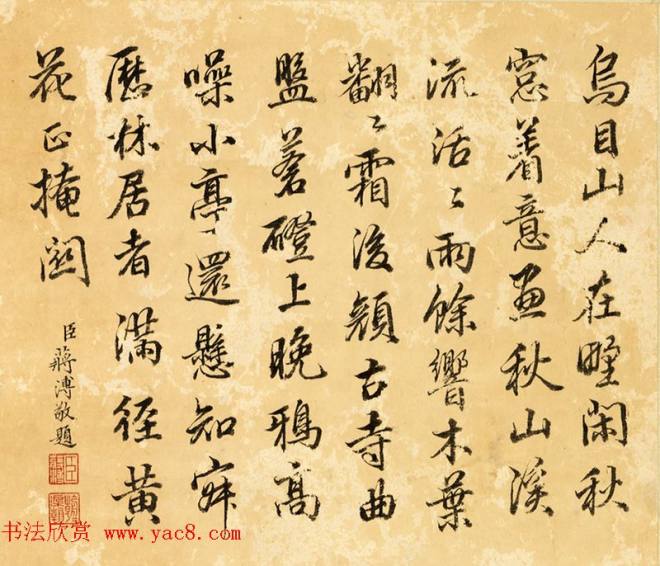 烏目山人在閑秋
窓着意畫秋山溪
流活〻雨餘響木葉
翻〻霜後顏古寺曲
盤蒼磴上晚鴉高
噪小亭還懸知寂
歷林居者滿徑黃
花正掩關
臣蔣溥敬題
书法欣赏 www.yac8.com